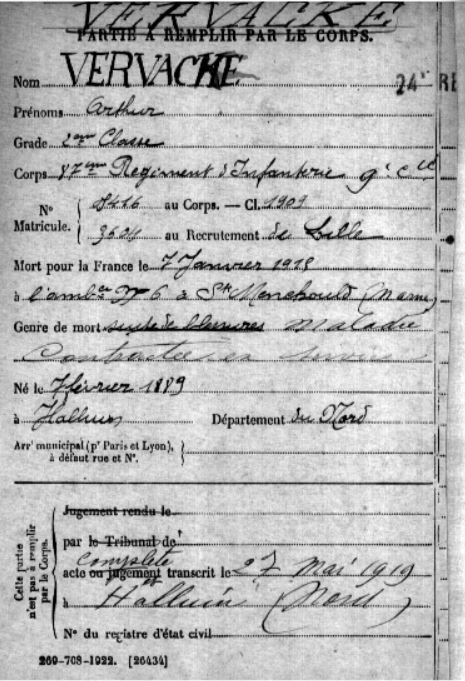 VERVACKE
PARTIE À REMPLIR PAR LE CORPS.
Nom VERVACKE
24e RÉ
Prénoms Arthur
Grade 2ème Classe
Corps 87ème Régiment d'Infanterie 9e Cie
N° Matricule. 8416 au Corps. — Cl. 1909
3604 au Recrutement de Lille
Mort pour la France le 7 Janvier 1915
à l'ambce N° 6 à Ste Menehould (Marne)
Genre de mort suite de blessures Maladie
Contractée en service
Né le 7 février 1889
à Halluin Département du Nord
Arrt municipal (pr Paris et Lyon),
à défaut rue et N°.
Cette partie
n'est pas à remplir
par le Corps.
Jugement rendu le
par le Tribunal de
complété
acte ou jugement transcrit le 27 Mai 1919
à Halluin (Nord)
N° du registre d'état civil
269-708-1922. [26434]